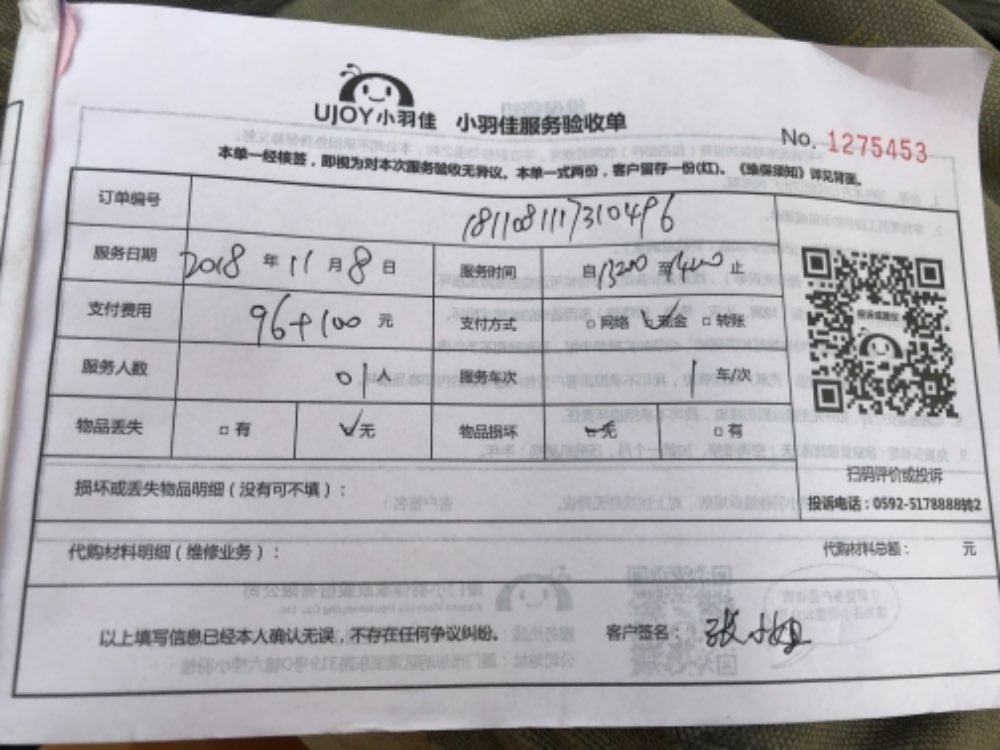 UJOY小羽佳 小羽佳服务验收单
No. 1275453
本单一经核签，即视为对本次服务验收无异议。本单一式两份，客户留存一份(红)。《维保须知》详见背面。
订单编号 1811081117310496
服务日期 2018 年 11 月 8 日 服务时间 自 1300 至 1400 止
支付费用 96+100 元 支付方式 □网络 ☑现金 □转账
服务人数 01 人 服务车次 1 车/次
物品丢失 □有 ☑无 物品损坏 ☑无 □有
扫码评价或投诉
损坏或丢失物品明细（没有可不填）：
投诉电话：0592-5178888转2
代购材料明细（维修业务）： 代购材料总额： 元
以上填写信息已经本人确认无误，不存在任何争议纠纷。 客户签名：张小姐